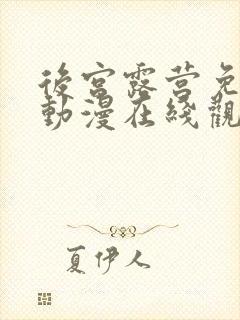 後宮露营免
動漫在綫觀
夏伊人